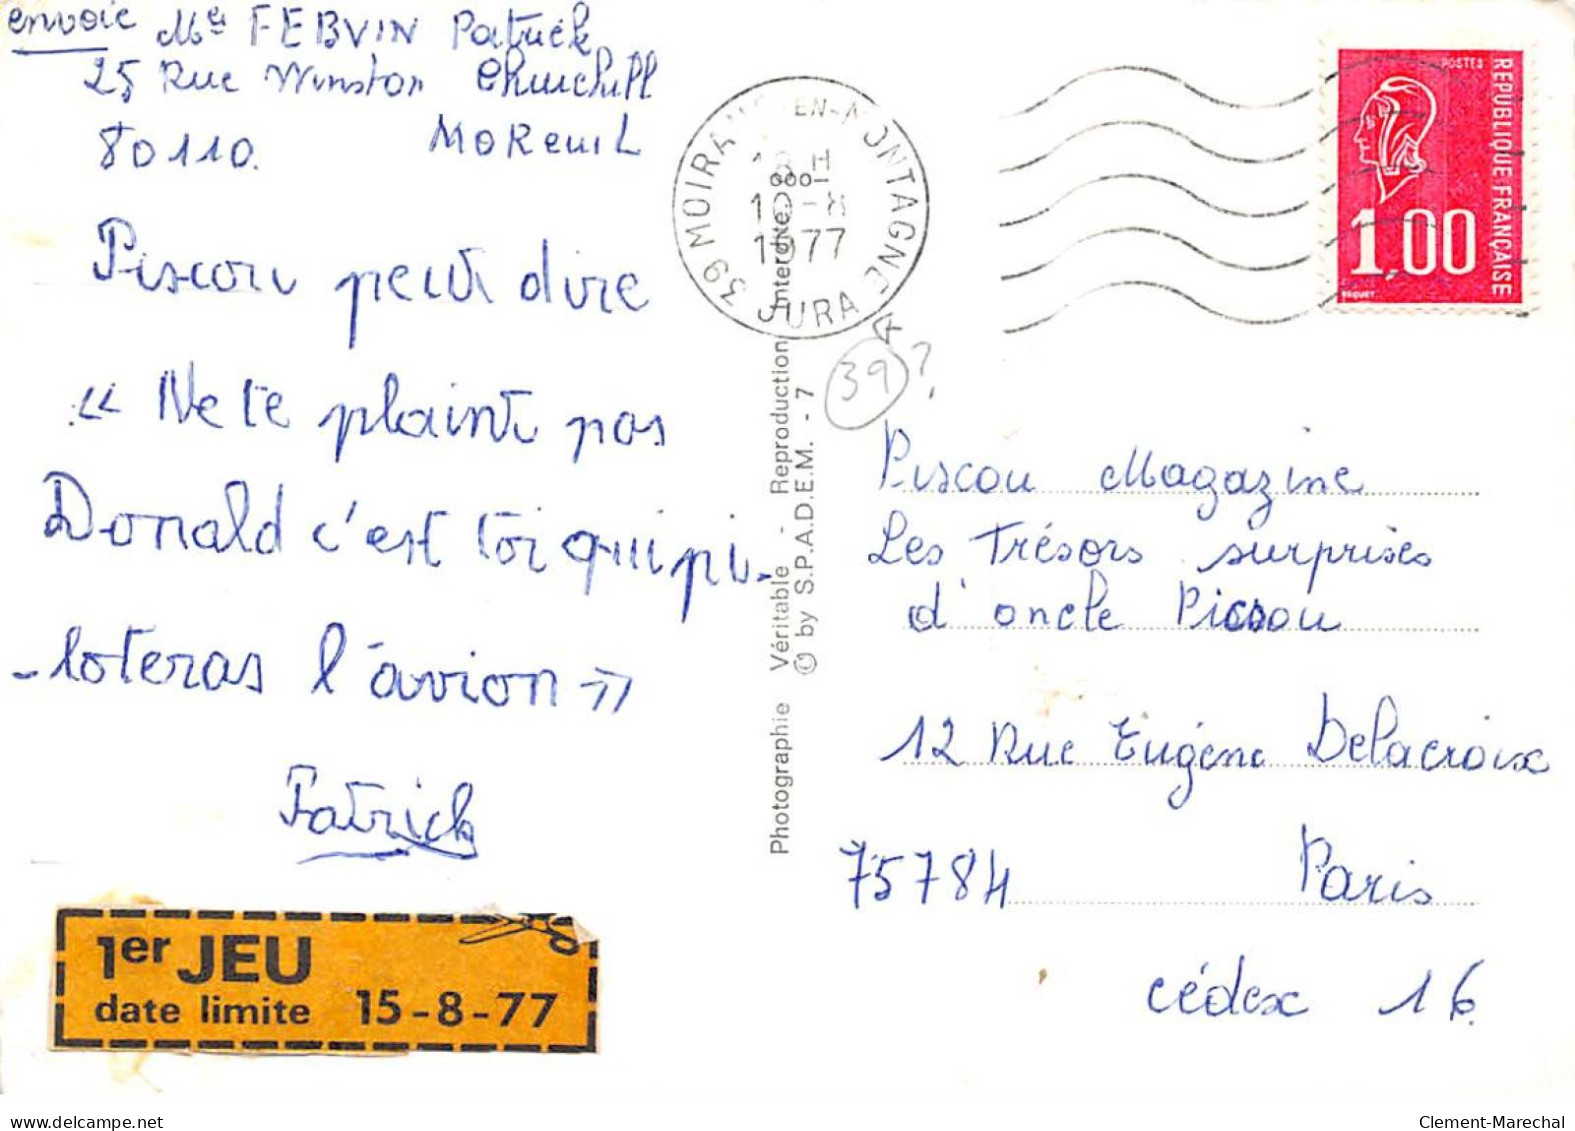 envoie Mr FEBVIN Patrick
25 Rue Winston Churchill
80110. MOReuiL
Piscou peut dire
« Ne te plaint pas
Donald c'est toi qui pi-
-loteras l'avion »
Patrick
1er JEU
date limite 15-8-77
Photographie Véritable - Reproduction Interdite
© by S.P.A.D.E.M. - 7
39 MOIRANS-EN-MONTAGNE
18 H
10-8
1977
JURA
39 ?
POSTES
REPUBLIQUE FRANÇAISE
1,00
BEQUET
Piscou Magazine
Les Trésors surprises
d'oncle Picsou
12 Rue Eugène Delacroix
75784 Paris
cédex 16
delcampe.net
Clement-Marechal